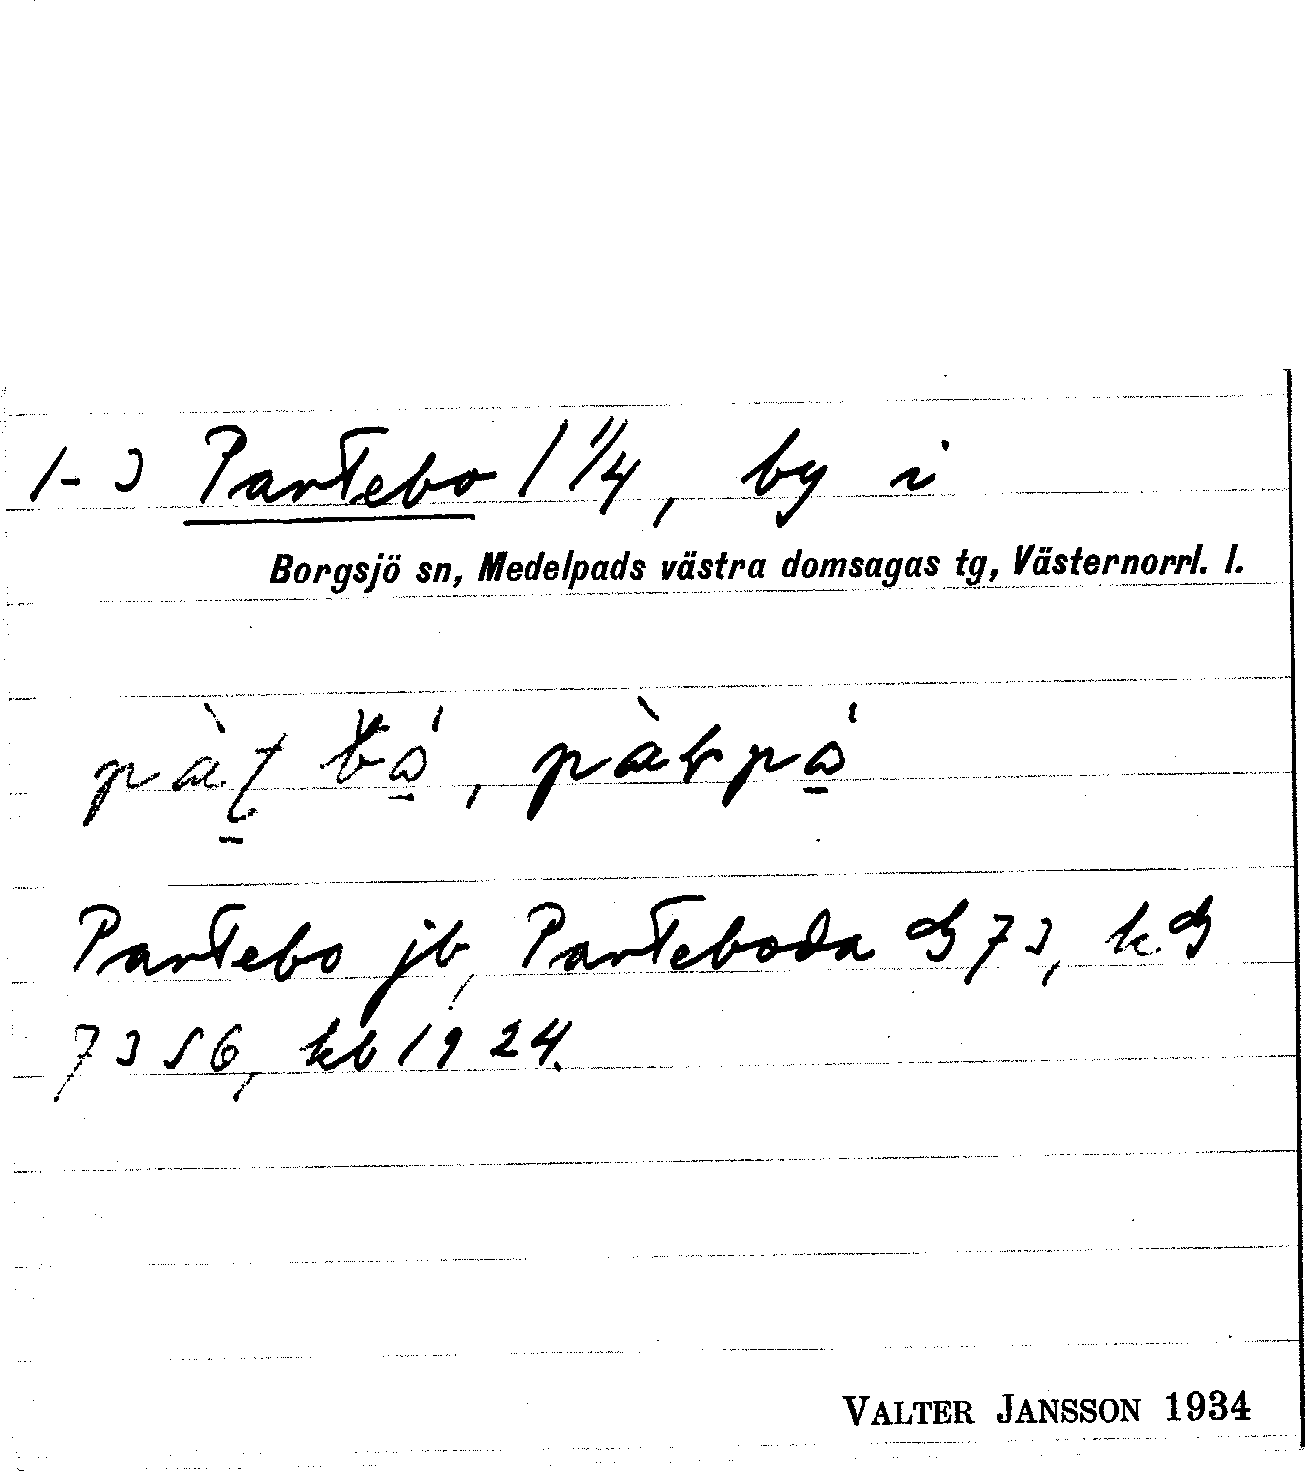 1-3 Partebo 1 1/4, by i
Borgsjö sn, Medelpads västra domsagas tg, Västernorrl. l.
Partebo jb, Parteboda GS 73, k. GS
7356, kb 1924.
VALTER JANSSON 1934